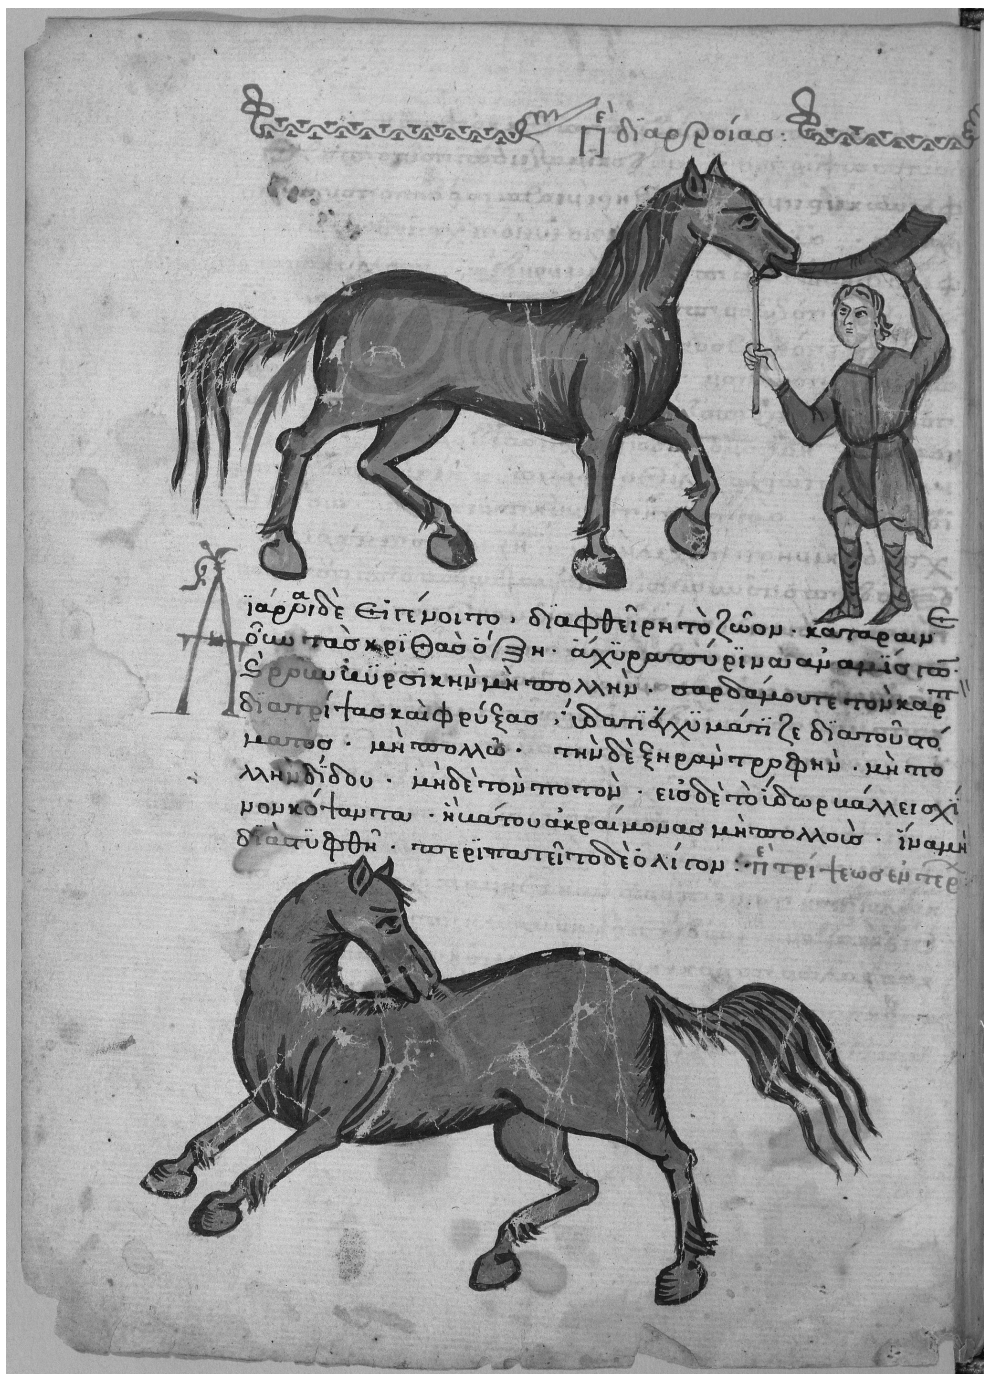 Πὲ διαρροίας:
Διάρροια δὲ εἰ γένοιτο, διαφθείρῃ τὸ ζῶον· καταραιν
τὰς κριθὰς ὄξη· ἄχυρα πύρινα
μὴ πολλὴν· καρδαμου τε τὸν καρπ
διατρίψας καὶ φρύξας, ὕδατι ἐγχυμάτιζε διὰ τοῦ στό
ματος· μὴ πολλῶ· τὴν δὲ ξηρὰν τροφὴν· μὴ πο
λλὴν δίδου· μηδὲ τὸν ποτὸν· εἰς δὲ τὸ ὕδωρ βάλλει σχί
νον κόψαντα· ἢ βάτου ἀκραίμονας μὴ πολλοὺς· ἵνα μὴ
περιπατεῖτο δὲ ὀλίγον: πὲ τρίψεως ἐντέρ